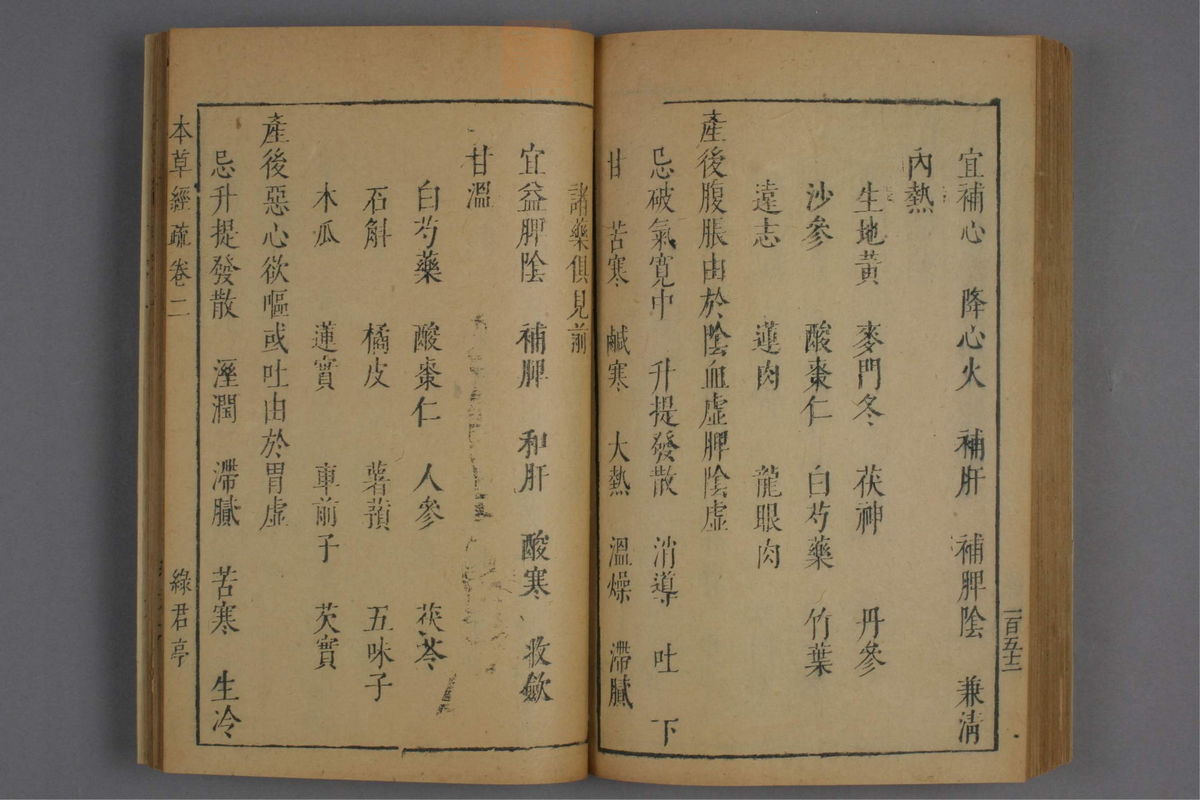 宜補心　降心火　補肝　補脾陰　兼清
內熱
生地黃　麥門冬　茯神　丹參
沙參　酸棗仁　白芍藥　竹葉
遠志　蓮肉　龍眼肉
產後腹脹由於陰血虛脾陰虛
忌破氣寬中　升提發散　消導　吐　下
甘　苦寒　鹹寒　大熱　溫燥　滯膩
諸藥俱見前
宜益脾陰　補脾　和肝　酸寒　收斂
甘溫
白芍藥　酸棗仁　人參　茯苓
石斛　橘皮　薯蕷　五味子
木瓜　蓮實　車前子　芡實
產後惡心欲嘔或吐由於胃虛
忌升提發散　溼潤　滯膩　苦寒　生冷
本草經疏　卷二　綠君亭